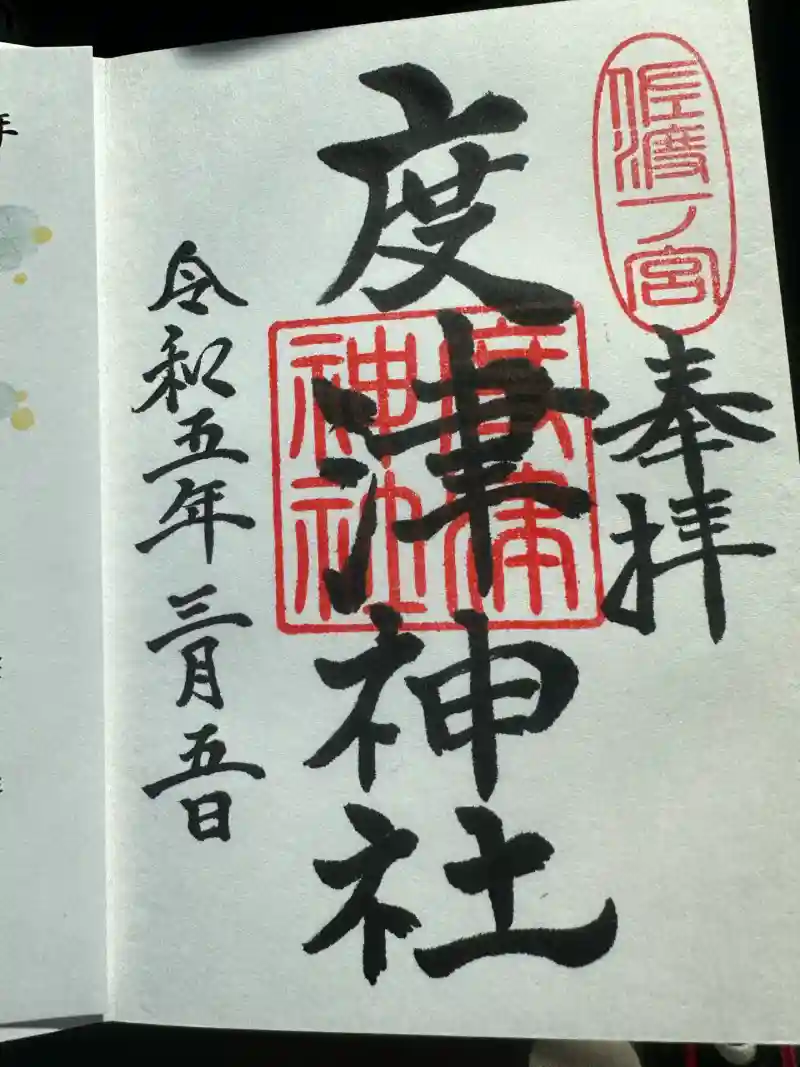 佐渡一ノ宮
奉拝
度津神社
度津
神社
令和五年三月五日
年